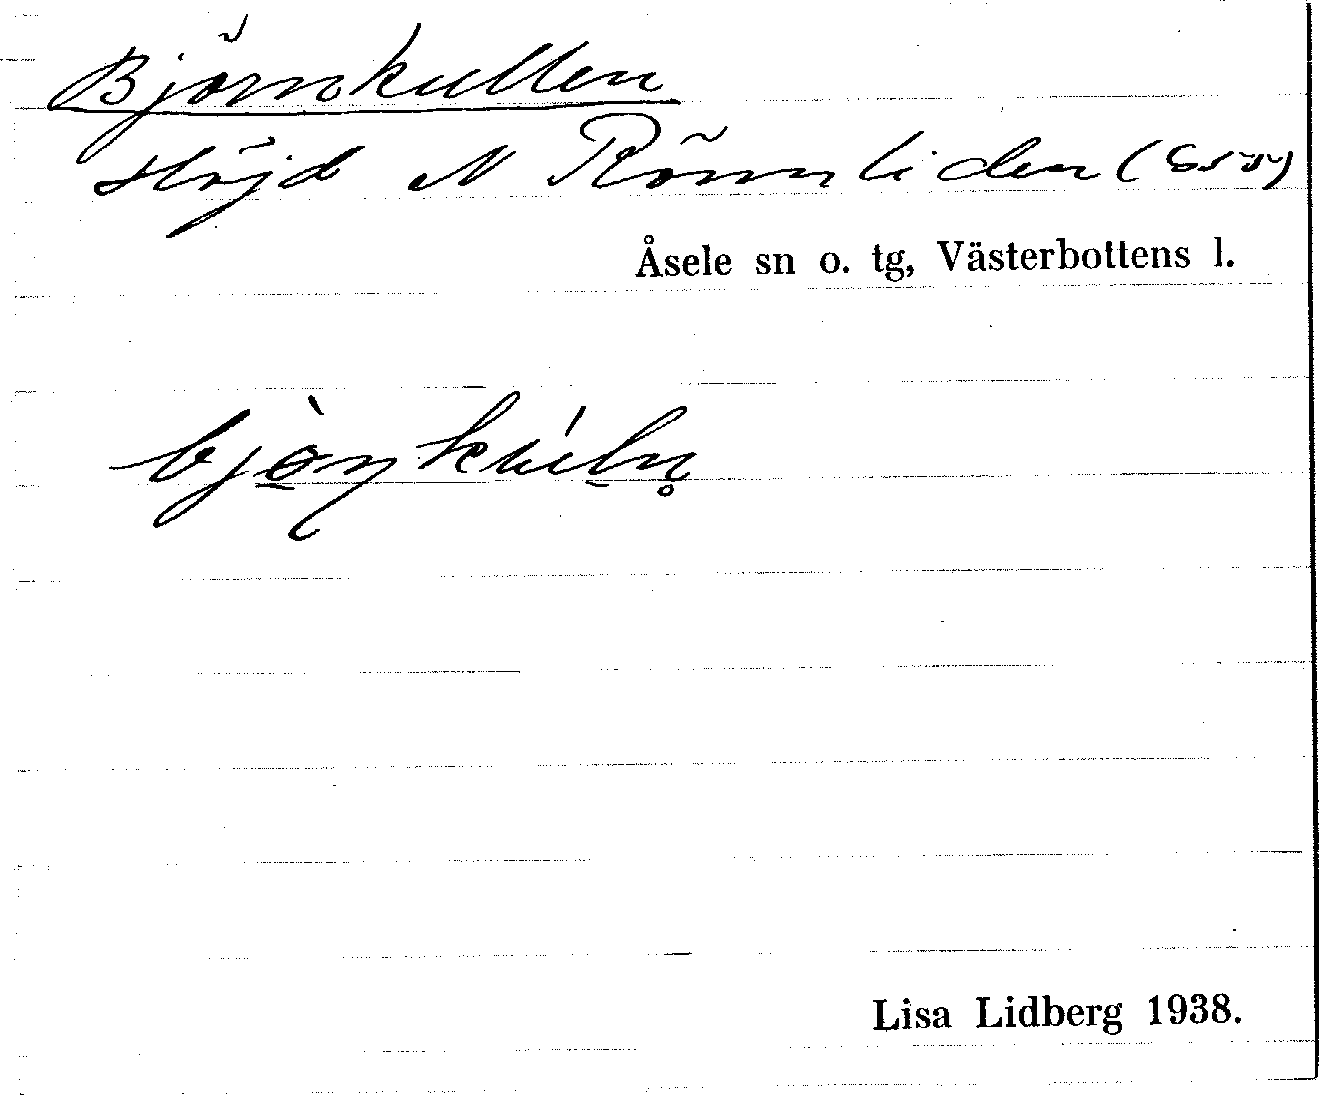 Björnkullen
Höjd N Rönnliden
Åsele sn o. tg, Västerbottens l.
bjò̱ŋkúḻn̥
Lisa Lidberg 1938.